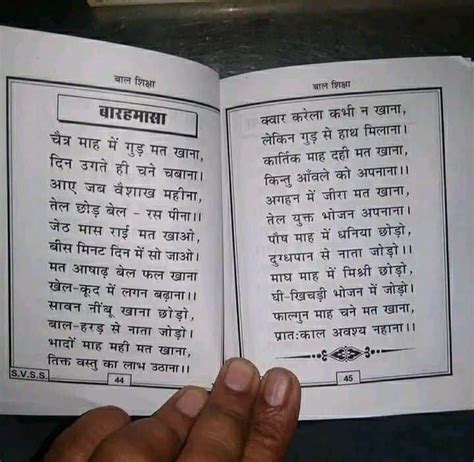 बाल शिक्षा
बारहमासा
चैत्र माह में गुड़ मत खाना,
दिन उगते ही चने चबाना।
आए जब वैशाख महीना,
तेल छोड़ बेल - रस पीना।।
जेठ मास राई मत खाओ,
बीस मिनट दिन में सो जाओ।
मत आषाढ़ बेल फल खाना
खेल-कूद में लगन बढ़ाना।।
सावन नींबू खाना छोड़ो,
बाल-हरड़ से नाता जोड़ो।
भादों माह मही मत खाना,
तिक्त वस्तु का लाभ उठाना।।
S.V.S.S.
44
बाल शिक्षा
क्वार करेला कभी न खाना,
लेकिन गुड़ से हाथ मिलाना।
कार्तिक माह दही मत खाना,
किन्तु आँवले को अपनाना।।
अगहन में जीरा मत खाना,
तेल युक्त भोजन अपनाना।
पौष माह में धनिया छोड़ो,
दुग्धपान से नाता जोड़ो।।
माघ माह में मिश्री छोड़ो,
घी-खिचड़ी भोजन में जोड़ो।
फाल्गुन माह चने मत खाना,
प्रातःकाल अवश्य नहाना।।
45